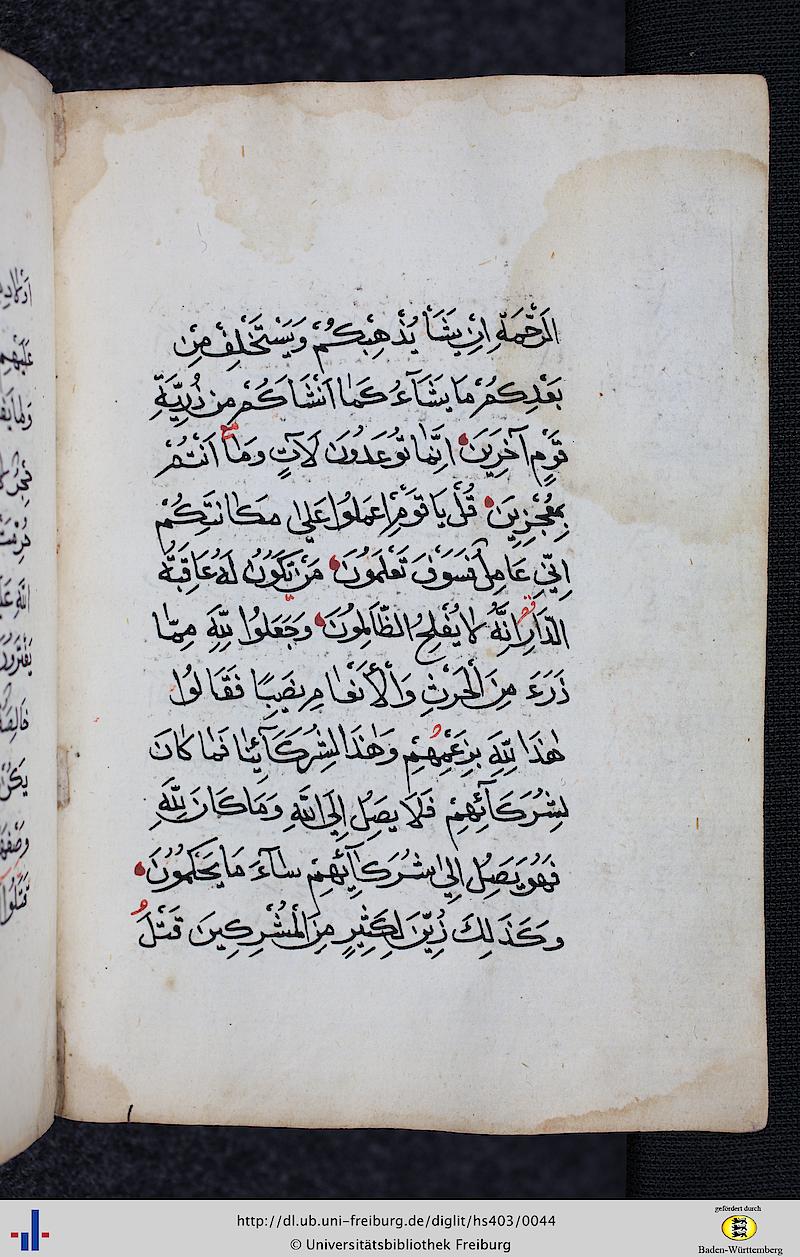 الرَّحْمَةِ اِنْ يَشَأْ يُذْهِبْكُمْ وَيَسْتَخْلِفْ مِنْ
بَعْدِكُمْ مَا يَشَآءُ كَمَا اَنْشَاَكُمْ مِنْ ذُرِّيَّةِ
قَوْمٍ آخَرِينَ اِنَّمَا تُوعَدُونَ لَآتٍ وَمَآ اَنْتُمْ
بِمُعْجِزِينَ قُلْ يَا قَوْمِ اعْمَلُوا عَلٰي مَكَانَتِكُمْ
اِنِّي عَامِلٌ فَسَوْفَ تَعْلَمُونَ مَنْ تَكُونُ لَهُ عَاقِبَةُ
الدَّارِ اِنَّهُ لَا يُفْلِحُ الظَّالِمُونَ وَجَعَلُوا لِلّٰهِ مِمَّا
ذَرَءَ مِنَ الْحَرْثِ وَالْاَنْعَامِ نَصِيبًا فَقَالُوا
هٰذَا لِلّٰهِ بِزَعْمِهِمْ وَهٰذَا لِشُرَكَآئِنَا فَمَا كَانَ
لِشُرَكَآئِهِمْ فَلَا يَصِلُ اِلَي اللّٰهِ وَمَا كَانَ لِلّٰهِ
فَهُوَ يَصِلُ اِلٰي شُرَكَآئِهِمْ سَآءَ مَا يَحْكُمُونَ
وَكَذٰلِكَ زُيِّنَ لِكَثِيرٍ مِنَ الْمُشْرِكِينَ قَتْلُ
http://dl.ub.uni-freiburg.de/diglit/hs403/0044
© Universitätsbibliothek Freiburg
gefördert durch
Baden-Württemberg